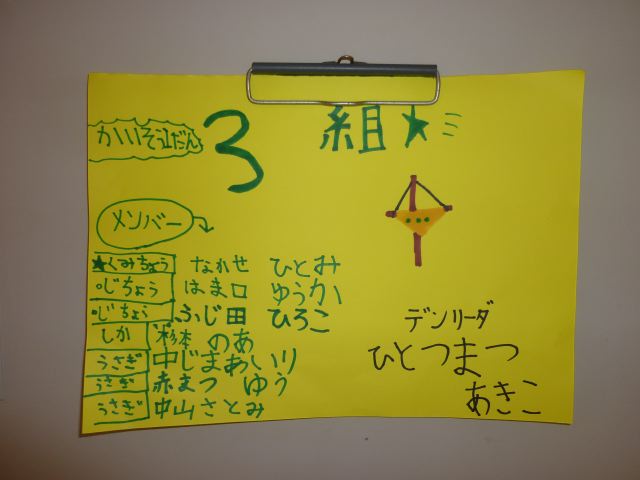 かいそくだん 3 組★
メンバー
★くみちょう なれせ ひとみ
じちょう はま口 ゆうか
じちょう ふじ田 ひろこ
しか 杉本 のあ
うさぎ 中じまあいり
うさぎ 赤まつ ゆう
うさぎ 中山さとみ
デンリーダ
ひとつまつ
あきこ